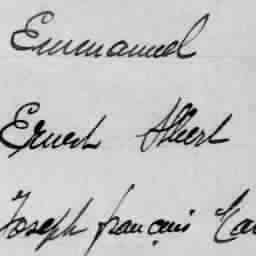 Emmanuel
Ernest Albert
Joseph françois